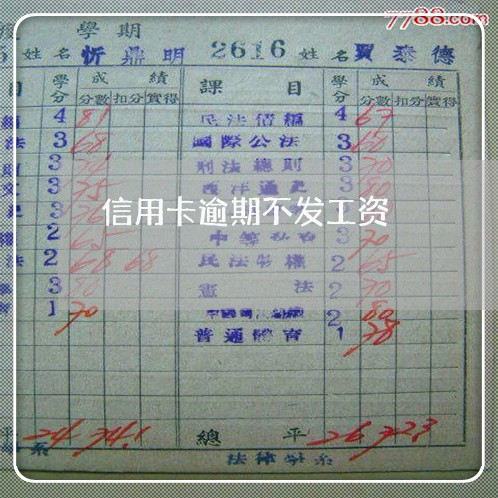 7788.com
學期
姓名 忻鼎明 2616 姓名 賈泰德
目 學分 成績 課目 學分 成績
分數 扣分 實得 分數 扣分 實得
4 81 民法債編 4 67
法 3 68 國際公法 3 60
3 刑法總則 3 70
3 75 西洋通史 3 80
信用卡逾期不发工资
2 3 70
法 2 68 68 民法物權 2 65
3 80 憲法 2 70
1 70 2 80
普通體育 1 78
平 24 74.1 總平 26 72.3
系 法律學系